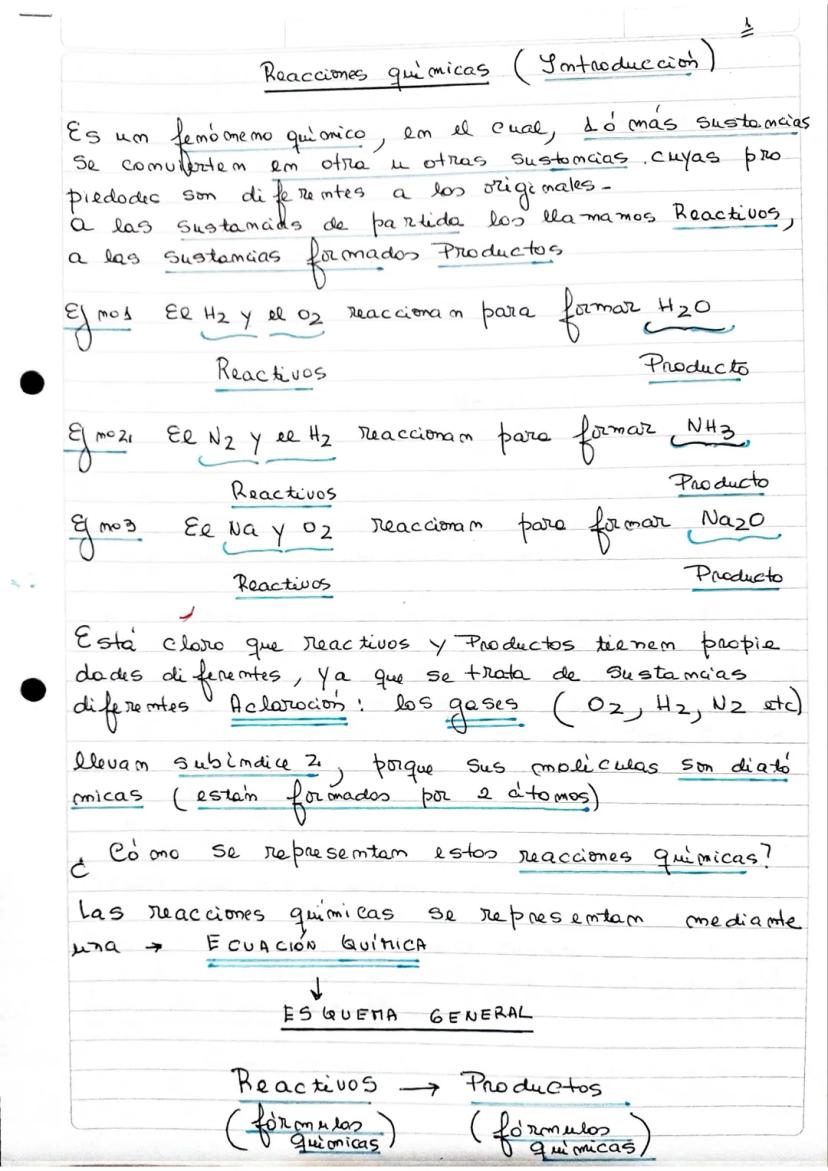 1
Reacciones químicas (Introducción)
Es un fenómeno químico, en el cual, 1 ó más sustancias
se convierten en otra u otras sustancias. cuyas pro
piedades son diferentes a las originales-
a las sustancias de partida las llamamos Reactivos,
a las sustancias formados Productos
Ej no1 El H2 y el O2 reaccionan para formar H2O
Reactivos Producto
Ej no2, El N2 y el H2 reaccionan para formar NH3
Reactivos Producto
Ej no3 El Na y O2 reaccionan para formar Na2O
Reactivos Producto
Está claro que reactivos y Productos tienen propie
dades diferentes, ya que se trata de sustancias
diferentes Aclaración: los gases (O2, H2, N2 etc)
llevan subíndice 2, porque sus moléculas son diató
micas (están formados por 2 átomos)
¿Cómo se representan estas reacciones químicas?
Las reacciones químicas se representan mediante
una → ECUACIÓN QUÍMICA
↓
ESQUEMA GENERAL
Reactivos → Productos
(fórmulas químicas) (fórmulas químicas)